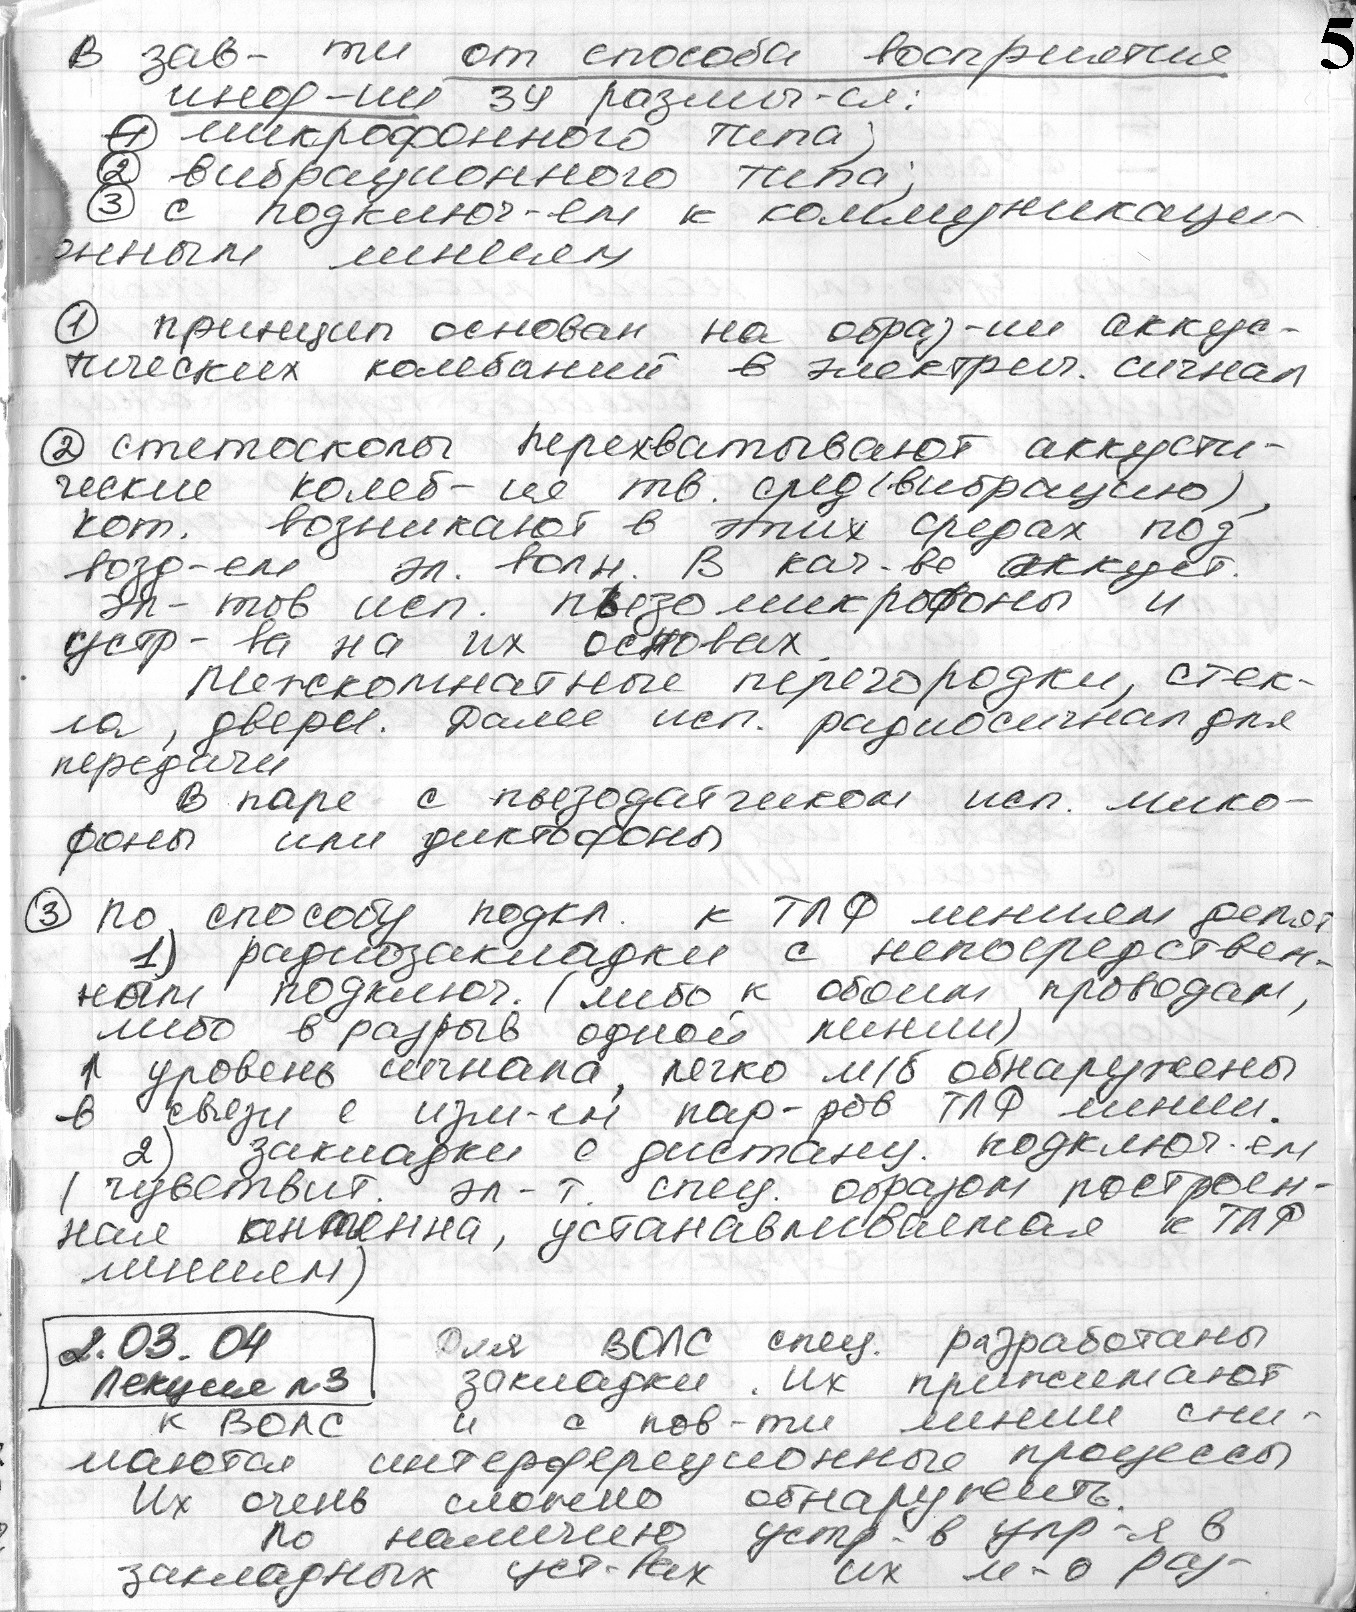 5
В зав-ти от способа восприятия
инф-ии ЗУ различ-ся:
① микрофонного типа;
② вибрационного типа;
③ с подключ-ем к коммуникаци-
онным линиям
① принцип основан на образ-ии аккус-
тических колебаний в электрич. сигнал
② стетоскопы перехватывают аккусти-
ческие колеб-ия тв. сред (вибрацию),
кот. возникают в этих средах под
возд-ем эл. волн. В кач-ве аккуст.
эл-тов исп. пьезомикрофоны и
устр-ва на их основах.
Межкомнатные перегородки, стек-
ла, двери. Далее исп. радиосигнал для
передачи
В паре с пьезодатчиком исп. мико-
фоны или диктофоны
③ по способу подкл. к ТЛФ линиям делят
1) радиозакладки с непосредствен-
ным подключ. (либо к обоим проводам,
либо в разрыв одной линии)
↑ уровень сигнала, легко м/б обнаружены
в связи с изм-ем пар-ров ТЛФ линии.
2) закладки с дистанц. подключ-ем
(чувствит. эл-т. спец. образом построен-
ная антенна, устанавливаемая к ТЛФ
линиям)
2.03.04
Лекция n3
Для ВОЛС спец. разработаны
закладки. Их прижимают
к ВОЛС и с пов-ти линии сни-
маются интерференционные процессы
Их очень сложно обнаружить.
По наличию устр-в упр-я в
закладных уст-вах их м-о раз-